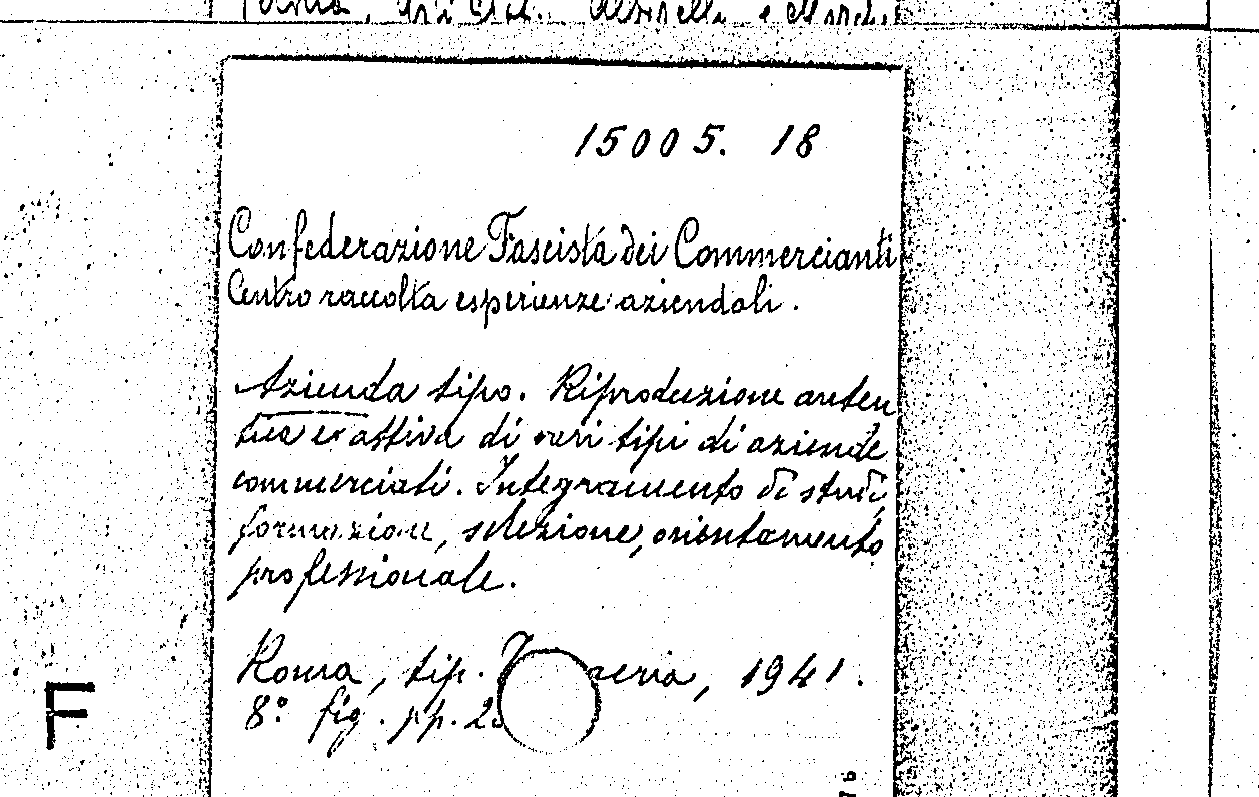 15005. 18
Confederazione Fascista dei Commercianti
Centro raccolta esperienze aziendali.
Azienda tipo. Riproduzione auten
tica et attiva di veri tipi di aziende
commerciali. Integramento di studi,
formazione, selezione, orientamento
professionale.
Roma, tip. 1941.
8° fig. pp.
F